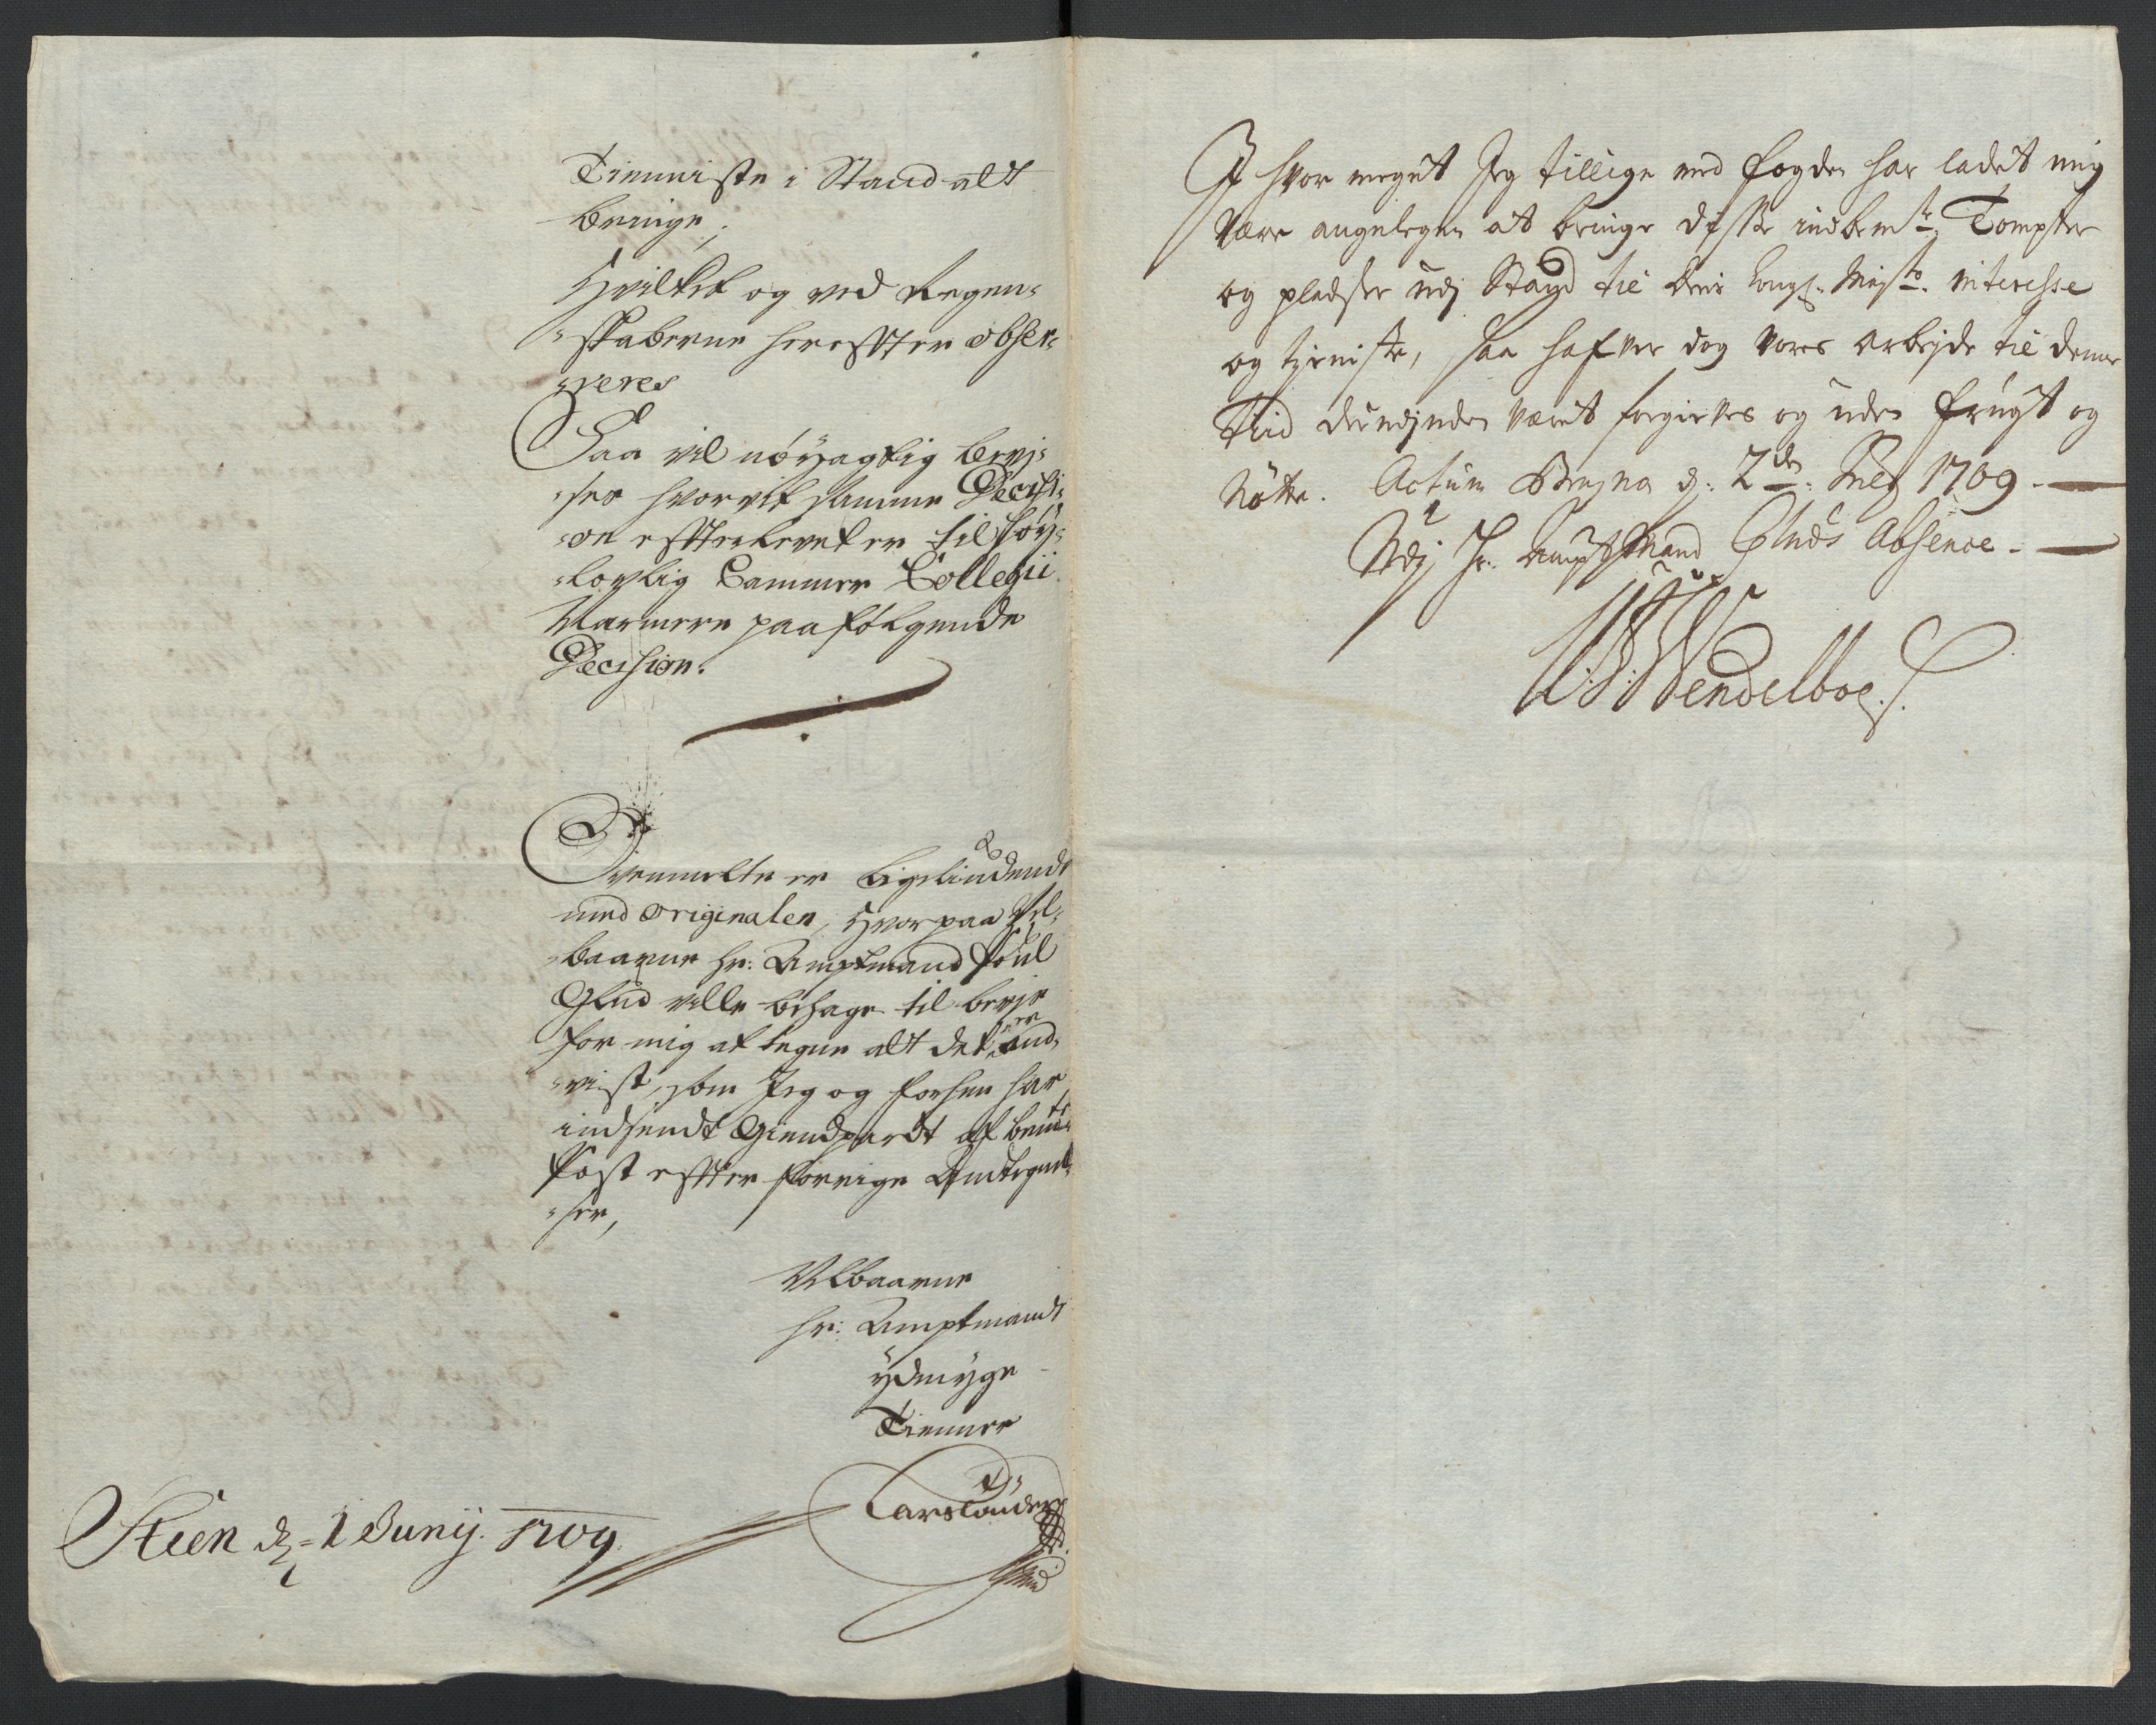 Tienniste i Stand alt
bringe,
Hvilket og ved Regen-
-skaberne hereffter obser-
-veres
Saa vil nöyagtig bevj-
-ses hvorvit samme Decisi-
-on effterlevet er til höy-
-lovlig Cammer Collegii
Narmere paafölgende
Decision.
Ovenmelte er ligeliudende
med originalen, hvorpaa Vel-
-baarne hr: Amptmand Poul
Glud ville behage til bevjs
for mig at tegne alt det er
-vist, som Jeg og forhen har
indsendt Giendpardt af bemte
Post effter forrige Andtegnel-
-ser,
Velbaarne
hr: Amptmands
ydmyge
Tienner
Lars
Steen d: 1 Junij. 1709
I hvor meget Jeg tillige med fogden har ladet mig
være angelegen at bringe disse indbemte Tompter
og pladser udj Stand til Deris Kongl. Mayts. interesse
og tjeniste, saa hafver dog vores arbejde til denne
Tiid derudjnden været forgieves og uden frugt og
Nötte. Actum d: 2de 1709.
Udj Hr. Amptmand Gluds Absence.
Wendelboe